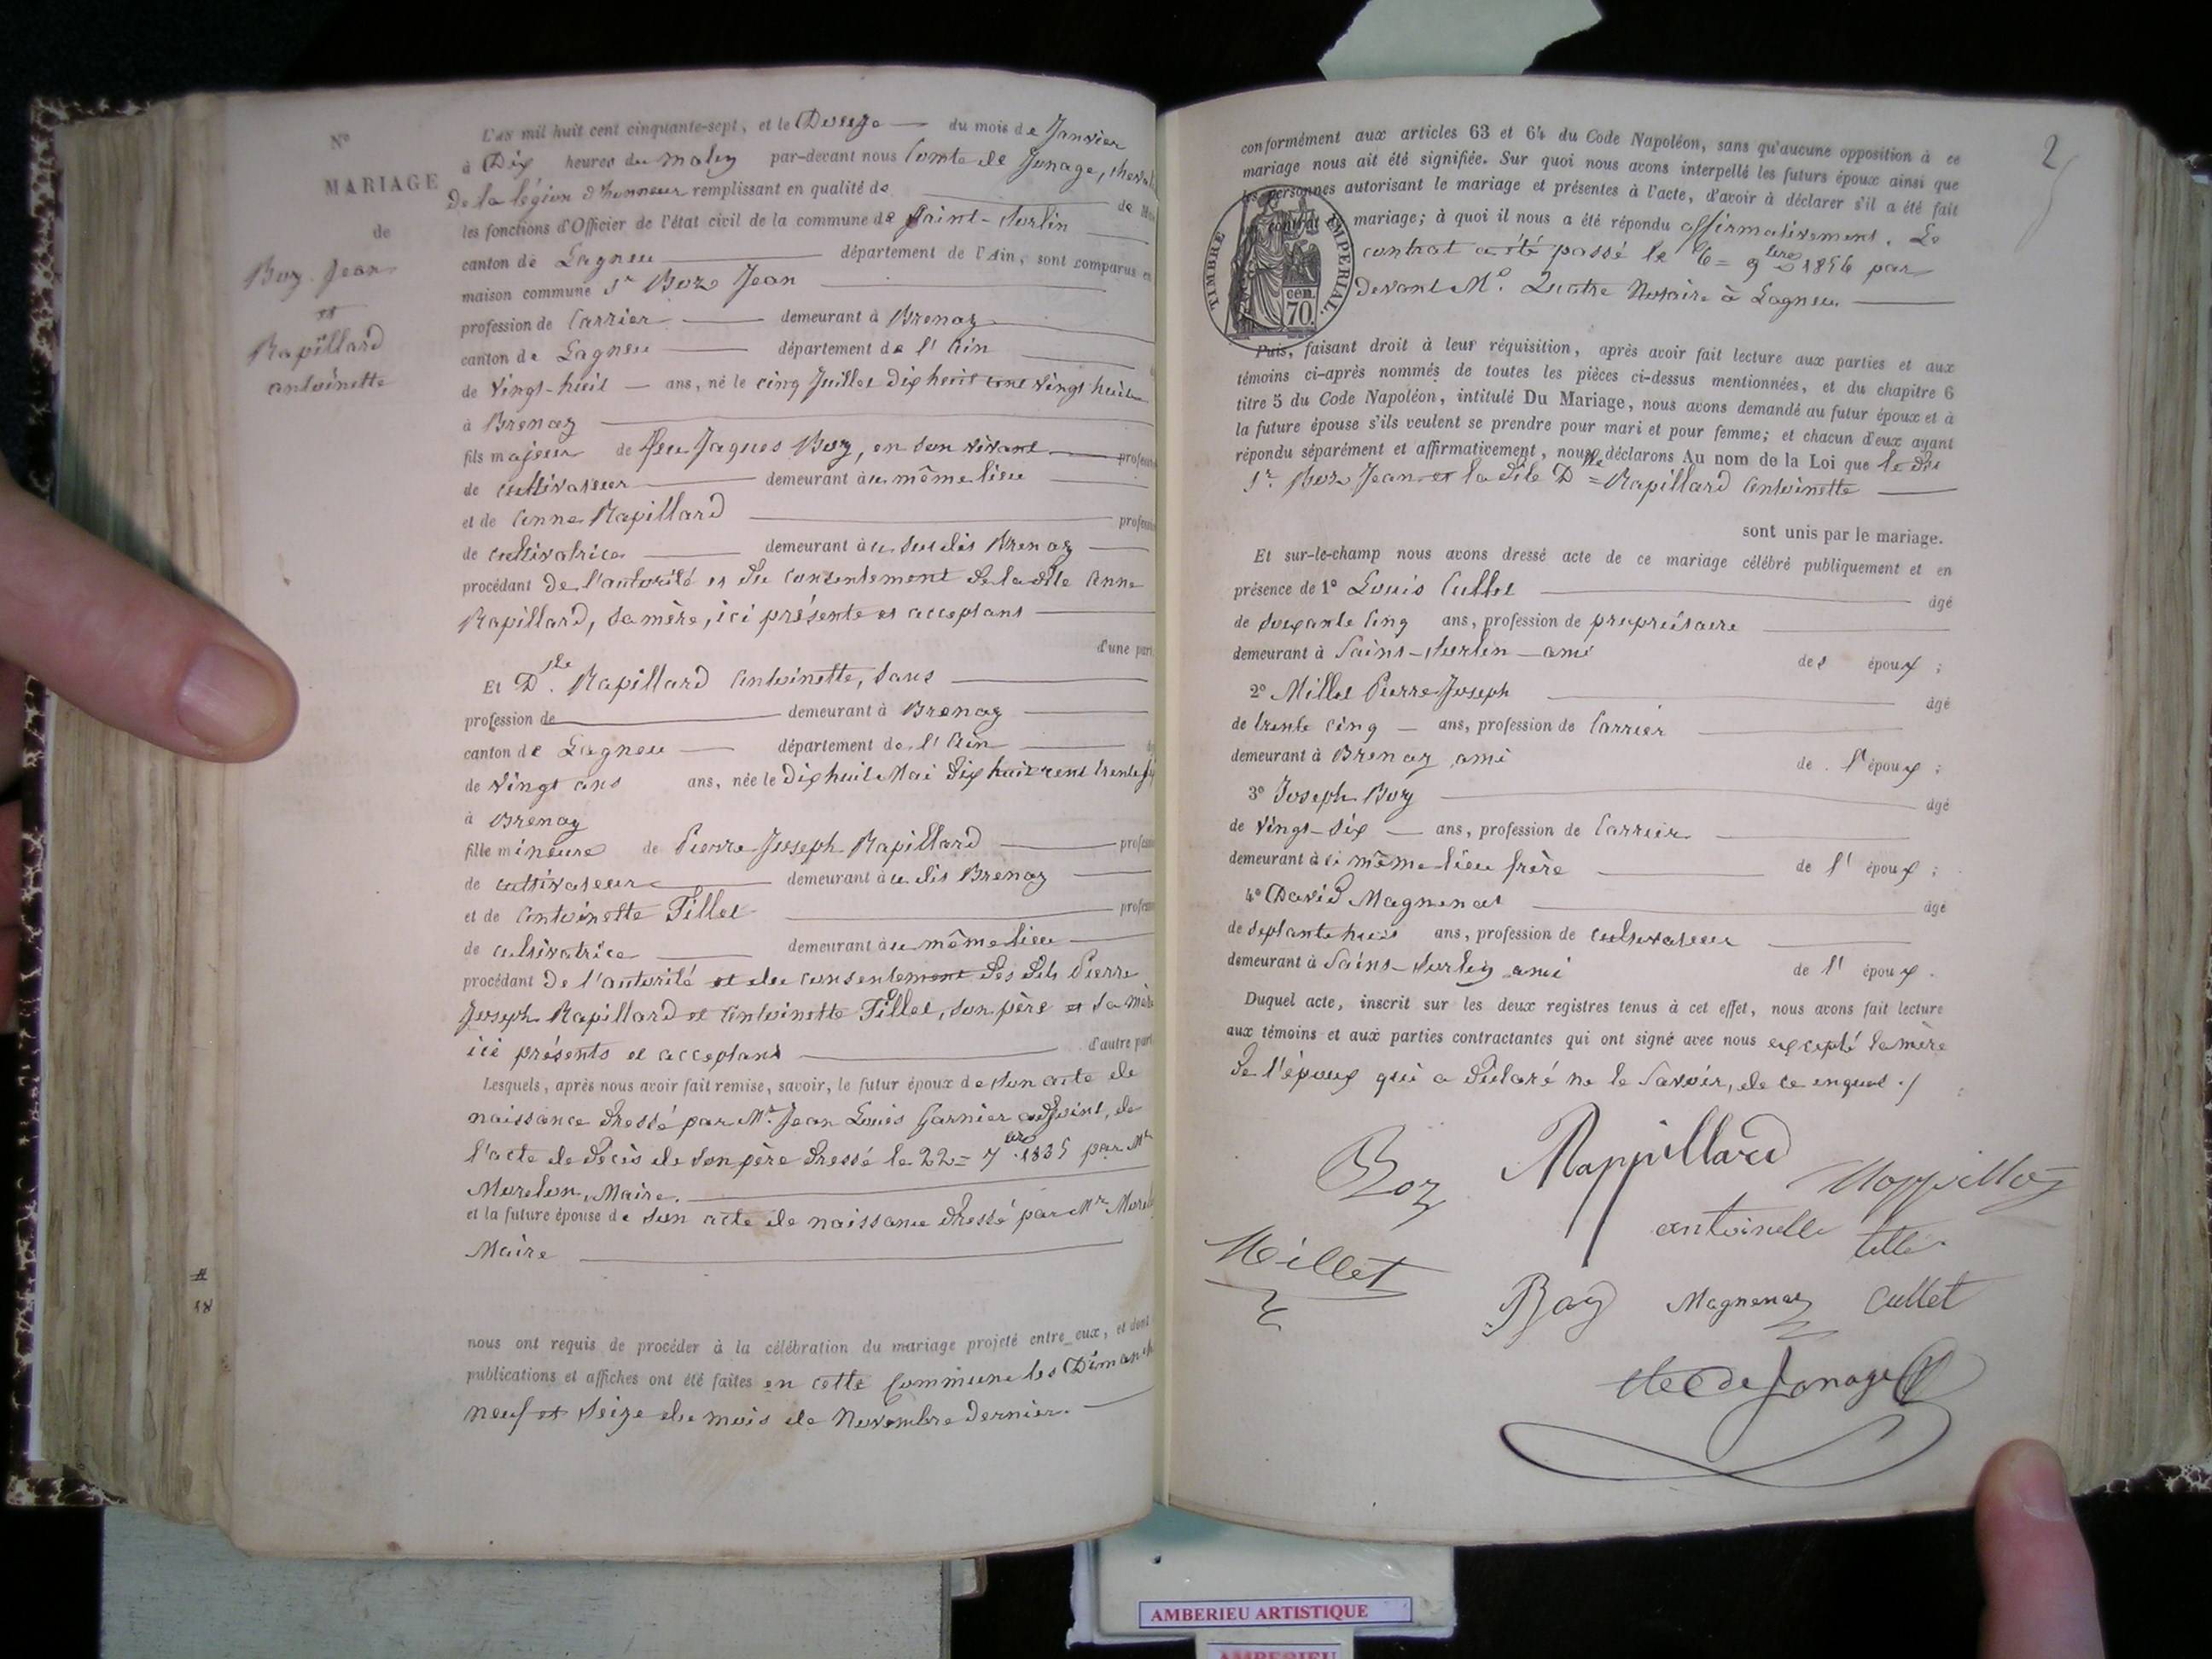 N°
MARIAGE
de
Boz Jean
et
Rapillard
antoinette
L'an mil huit cent cinquante-sept, et le Douze du mois de Janvier
à Dix heures du matin par-devant nous Comte de Jonage,
de la légion d'honneur remplissant en qualité de de
les fonctions d'Officier de l'état civil de la commune de Saint-Sorlin
canton de Lagneu département de l'Ain, sont comparus en
maison commune Sr Boz Jean
profession de Carrier demeurant à Brenaz
canton de Lagneu département de l'Ain
de vingt-huit ans, né le cinq Juillet dix huit cent vingt huit
à Brenaz
fils majeur de feu Jaques Boz, en son vivant
de cultivateur demeurant au même lieu
et de Anne Rapillard
de cultivatrice demeurant au sus dit Brenaz
procédant de l'autorité et du consentement de la dite Anne
Rapillard, sa mère, ici présente et acceptant
d'une part
Et Dlle. Rapillard Antoinette, sans
profession de demeurant à Brenaz
canton de Lagneu département de l'Ain
de vingt ans ans, née le dix huit Mai dix huit cent trente
à Brenaz
fille mineure de Pierre Joseph Rapillard
de cultivateur demeurant au dit Brenaz
et de Antoinette Tillet
de cultivatrice demeurant au même lieu
procédant de l'autorité et du consentement des dits Pierre
Joseph Rapillard et Antoinette Tillet, son père et sa mère
ici présents et acceptant d'autre part
Lesquels, après nous avoir fait remise, savoir, le futur époux de son acte de
naissance dressé par Mr. Jean Louis Garnier adjoint, de
l'acte de décès de son père dressé le 22 = 7bre 1835 par Mr
Morelon, Maire.
et la future épouse de son acte de naissance dressé par Mr
Maire
nous ont requis de procéder à la célébration du mariage projeté entre eux, et dont
publications et affiches ont été faites en cette Commune les
neuf et seize du mois de Novembre dernier.
2
conformément aux articles 63 et 64 du Code Napoléon, sans qu'aucune opposition à ce
mariage nous ait été signifiée. Sur quoi nous avons interpellé les futurs époux ainsi que
les personnes autorisant le mariage et présentes à l'acte, d'avoir à déclarer s'il a été fait
contrat de mariage; à quoi il nous a été répondu affirmativement. Le
contrat a été passé le 6 = 9bre 1856 par
devant Me. Quatre Notaire à Lagneu
TIMBRE IMPÉRIAL.
cen.
70.
Puis, faisant droit à leur réquisition, après avoir fait lecture aux parties et aux
témoins ci-après nommés de toutes les pièces ci-dessus mentionnées, et du chapitre 6
titre 5 du Code Napoléon, intitulé Du Mariage, nous avons demandé au futur époux et à
la future épouse s'ils veulent se prendre pour mari et pour femme; et chacun d'eux ayant
répondu séparément et affirmativement, nous déclarons Au nom de la Loi que le dit
Sr. Boz Jean et la dite Dlle = Rapillard Antoinette
sont unis par le mariage.
Et sur-le-champ nous avons dressé acte de ce mariage célébré publiquement et en
présence de 1° Louis Cullet âgé
de soixante cinq ans, profession de propriétaire
demeurant à Saint-Sorlin ami des époux;
2° Millet Pierre Joseph âgé
de trente cinq ans, profession de Carrier
demeurant à Brenaz ami de l'époux;
3° Joseph Boz âgé
de vingt-six ans, profession de Carrier
demeurant à même lieu frère de l'époux;
4° David Magnenat âgé
de ans, profession de cultivateur
demeurant à Saint-Sorlin ami de l'époux.
Duquel acte, inscrit sur les deux registres tenus à cet effet, nous avons fait lecture
aux témoins et aux parties contractantes qui ont signé avec nous excepté la mère
de l'époux qui a déclaré ne le savoir, de ce enquis ./
Boz Rappillard
antoinette
Millet
Boz Magnenaz Cullet
de Jonage
AMBERIEU ARTISTIQUE
AMBERIEU